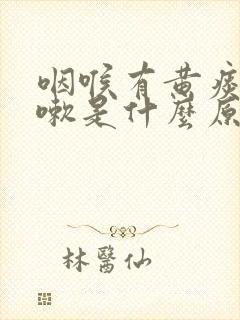 咽喉有黄痰
嗽是什麼原
林醫仙